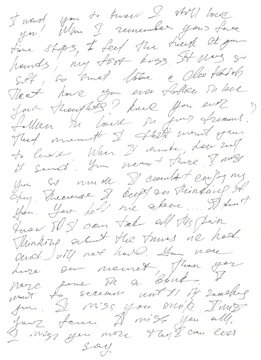 I want you to know I still love
you! When I remember your face
time stops, I feel the touch of your
hands, my first kiss. It was so
soft, so sweet
have you ever fallen in love
your thoughts? have you ever
fallen in love in your dreams.
That moment I didn't want you
to leave. When I woke,
it send. You weren't there I miss
you so much I couldn't enjoy my
day because I kept on thinking of
you. You left me alone. I don't
know if I can take all this pain
thinking about the times we had
and will not have. You were
here one moment than you
were gone in a blink I
want to scream until I
you. I miss your smile I miss
your face. I miss you all,
I miss you more than I can ever
say.